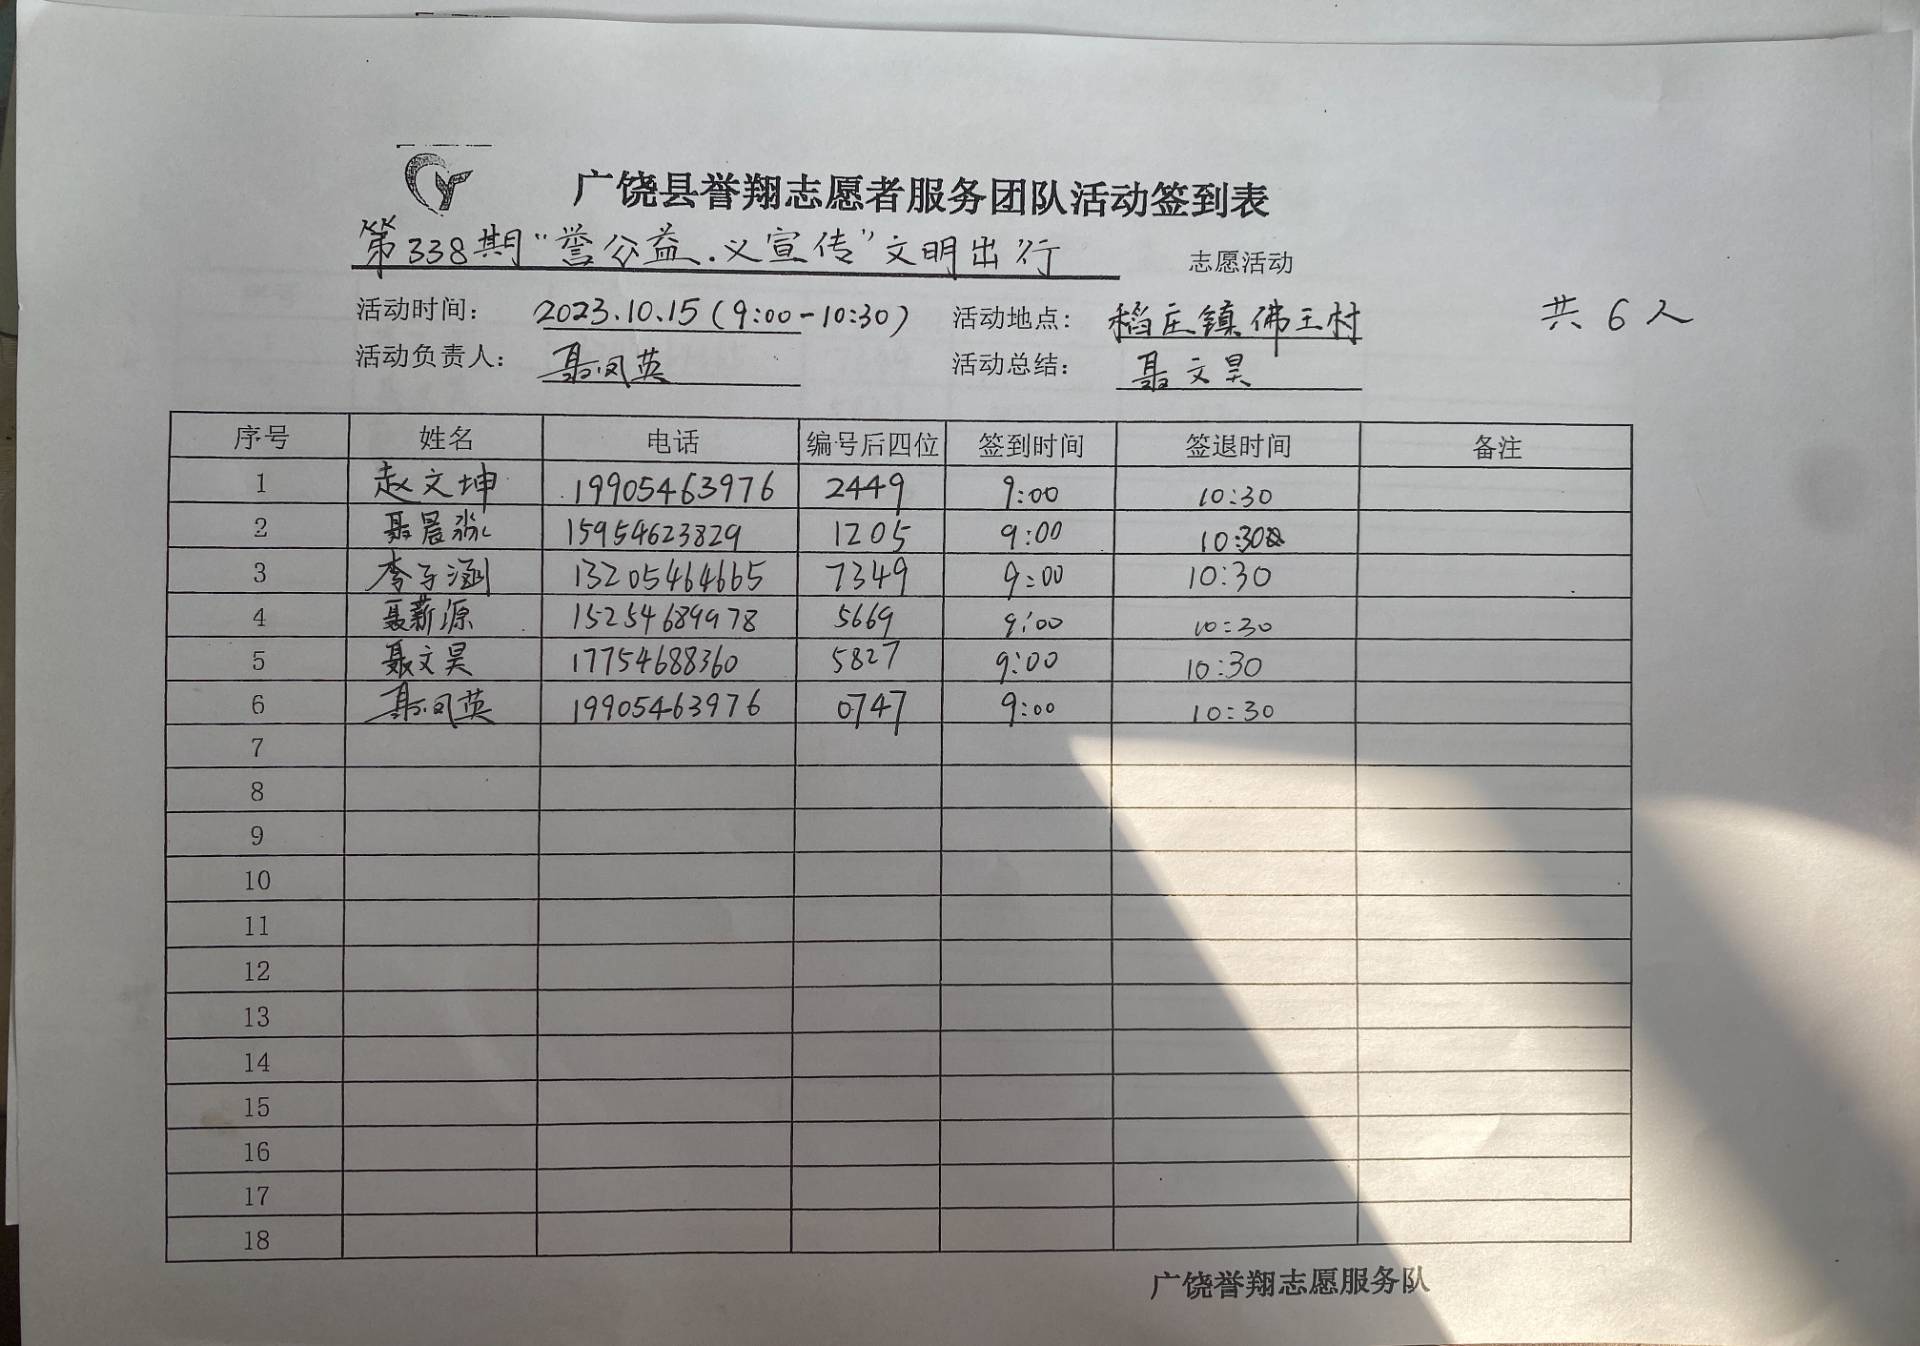 广饶县誉翔志愿者服务团队活动签到表
第338期“誉公益.义宣传”文明出行 志愿活动
活动时间: 2023.10.15(9:00-10:30) 活动地点: 稻庄镇佛王村 共6人
活动负责人: 聂凤英 活动总结: 聂文昊
序号 姓名 电话 编号后四位 签到时间 签退时间 备注
1 赵文坤 19905463976 2449 9:00 10:30
2 聂晨淼 15954623829 1205 9:00 10:30
3 李子涵 13205464665 7349 9:00 10:30
4 聂薪源 15254689978 5669 9:00 10:30
5 聂文昊 17754688360 5827 9:00 10:30
6 聂凤英 19905463976 0747 9:00 10:30
7
8
9
10
11
12
13
14
15
16
17
18
广饶誉翔志愿服务队